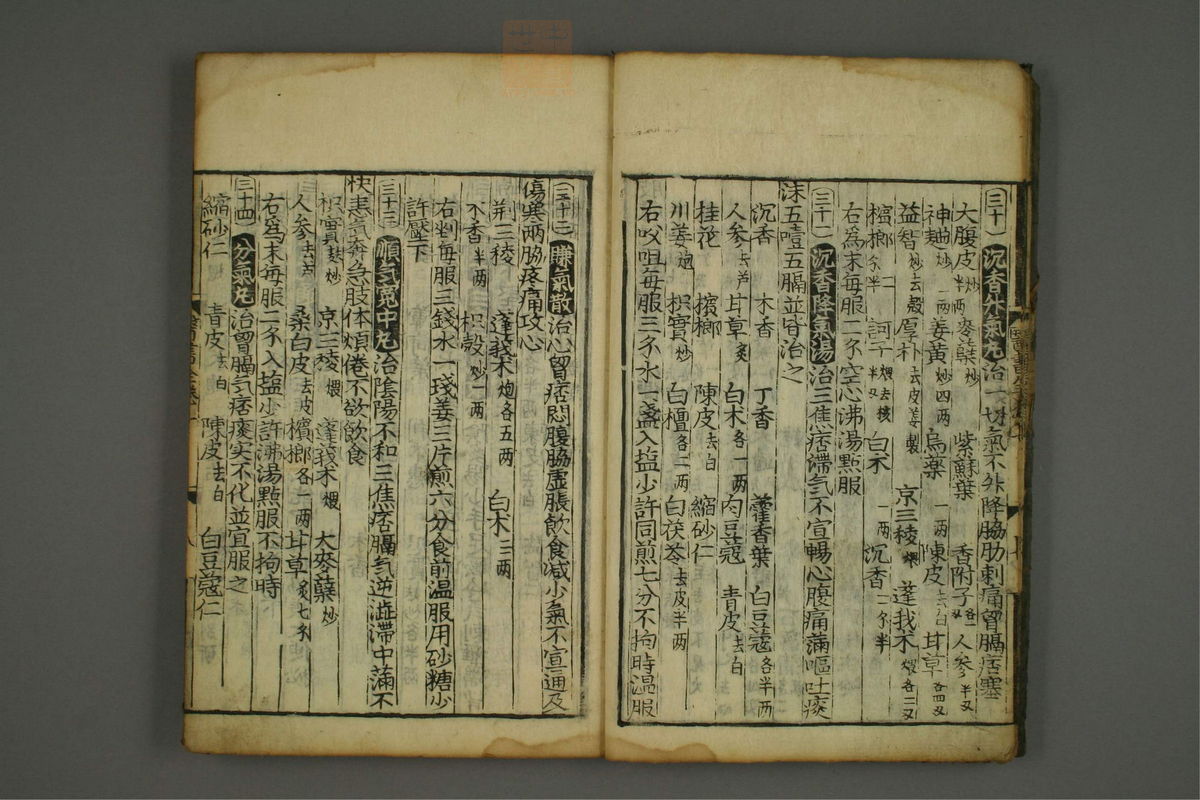 三十一 沉香升氣丸治一切氣不升降脇肋刺痛胷膈痞塞
大腹皮炒半两 麥蘖炒 紫蘇葉 香附子各一 人參半又
神麯炒一两 姜黃炒四两 烏藥一两 陳皮去白 甘草各四又
益智炒去殼 厚朴去皮姜製 京三稜煨 蓬我朮煨各二又
檳榔二 訶子煨去核 白朮一两 沉香二 半
右為末每服二 空心沸湯點服
三十二 沉香降氣湯治三焦痞滯气不宣暢心腹痛滿嘔吐痰
沫五噎五膈並皆治之
沉香 木香 丁香 藿香葉 白豆蔻各半两
人參去芦 甘草炙 白朮各一两 肉豆蔻 青皮去白
桂花 檳榔 陳皮去白 縮砂仁
川姜炮 枳實炒 白檀各二两 白茯苓去皮半两
右㕮咀每服三 水一盞入塩少許同煎七分不拘時温服
三十三 賺氣散治心胷痞悶腹脇虛脹飲食减少氣不宣通及
傷寒两脇疼痛攻心
荆三稜 蓬莪朮炮各五两 白朮三两
木香半两 枳殼炒一两
右剉每服三錢水一琖姜三片煎六分食前温服用砂糖少
許壓下
三十三 順气寬中丸治陰陽不和三焦痞膈气逆澁滯中滿不
快恚氣奔急肢体煩倦不欲飲食
枳實麩炒 京三稜煨 蓬莪朮煨 大麥蘖炒
人參去芦 桑白皮去皮 檳榔各一两 甘草炙七
右為末每服二 入塩少許沸湯點服不拘時
三十四 分氣丸治胷膈气痞痰实不化並宜服之
縮砂仁 青皮去白 陳皮去白 白豆蔻仁